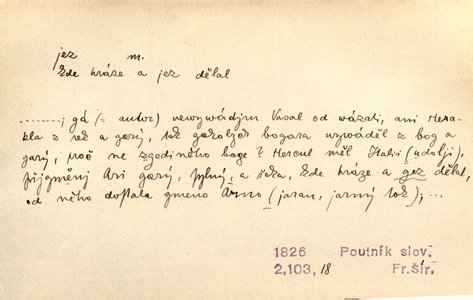 jez m.
kde hráze a jez dělal
........; gá (= autor) newywádjm Vasal od wázati, ani Hera-
kla z rek a gorý, tak gakožed bogara wywáděl z bog a
garý, proč ne zgediného boge? Hercul měl Italii (udolj),
přigměnj Ari gorý, sylný a řeka, kde hráze a gez dělal,
od něho dostala gmeno Arno (jaran, jarný tok); ...
1826 Poutník slov.
2,103, 18 Fr.Šír.